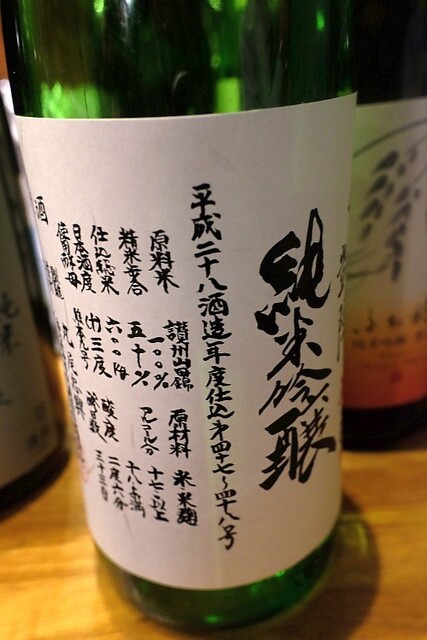 純米吟醸
平成二十八酒造年度仕込第四七〜四八号
原料米 讃州山田錦 一〇〇% 原材料 米 米麹
精米歩合 五十% アルコール分 十七以上 十八未満
仕込総米 六〇〇瓩 酸度 二度六分
日本酒度 (+)三度 日数 三十三日
使用酵母 熊本九号
酒
純米